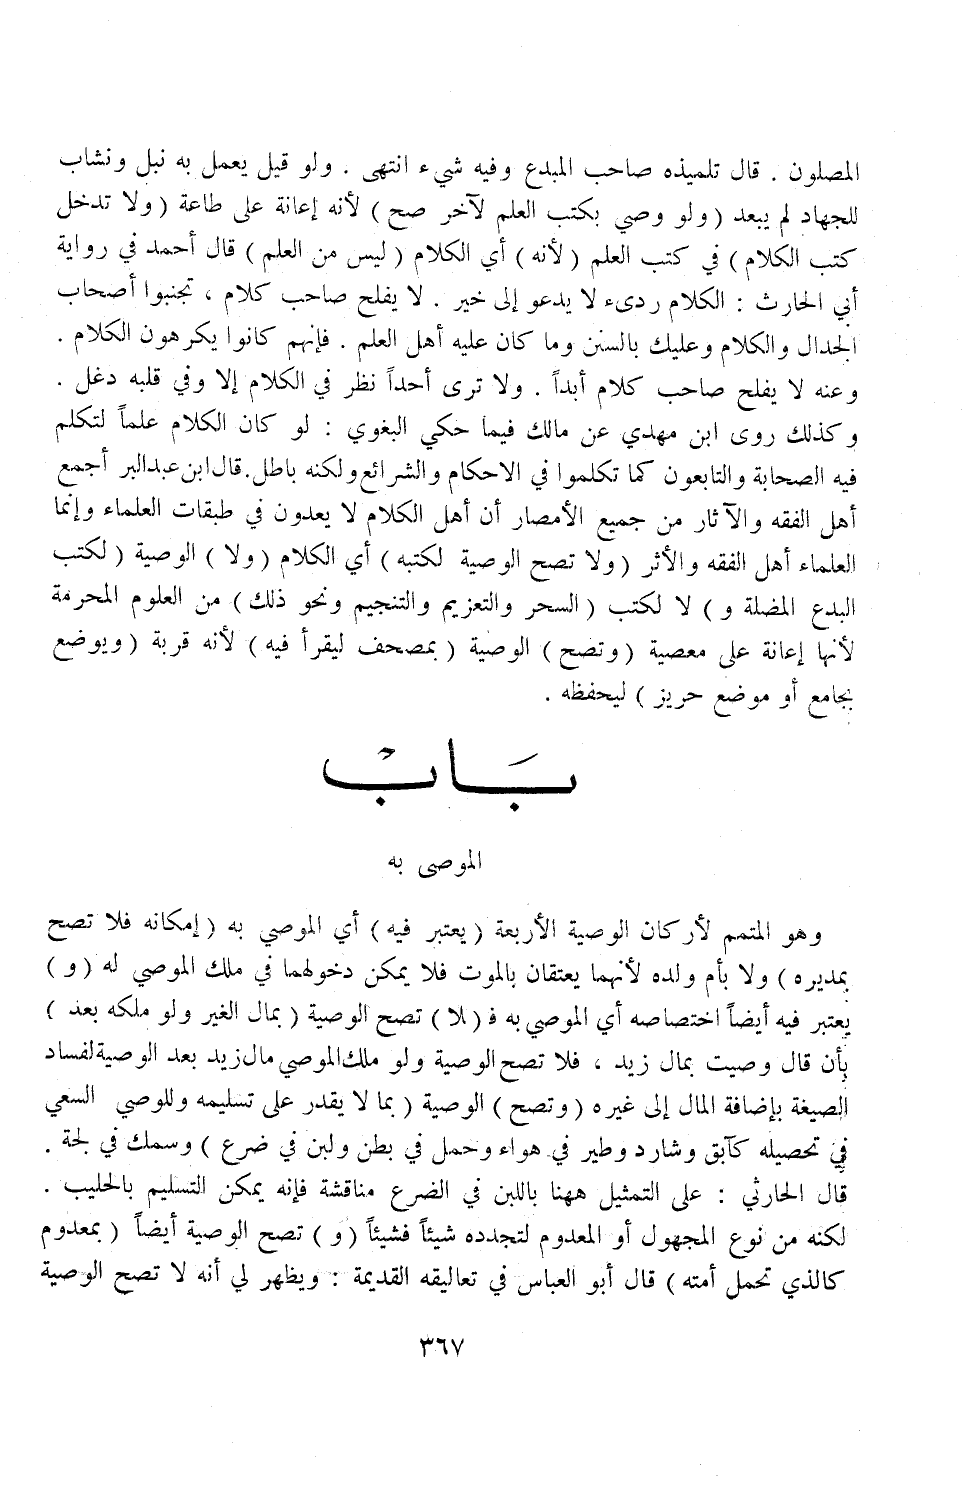 المصلون . قال تلميذه صاحب المبدع وفيه شيء انتهى . ولو قيل يعمل به نبل ونشاب
للجهاد لم يبعد ( ولو وصي بكتب العلم لآخر صح ) لأنه إعانة على طاعة ( ولا تدخل
كتب الكلام ) في كتب العلم ( لأنه ) أي الكلام ( ليس من العلم ) قال أحمد في رواية
أبي الحارث : الكلام رديء لا يدعو إلى خير . لا يفلح صاحب كلام ، تجنبوا أصحاب
الجدال والكلام وعليك بالسنن وما كان عليه أهل العلم . فإنهم كانوا يكرهون الكلام .
وعنه لا يفلح صاحب كلام أبداً . ولا ترى أحداً نظر في الكلام إلا وفي قلبه دغل .
وكذلك روى ابن مهدي عن مالك فيما حكي البغوي : لو كان الكلام علماً لتكلم
فيه الصحابة والتابعون كما تكلموا في الاحكام والشرائع ولكنه باطل. قال ابن عبدالبر أجمع
أهل الفقه والآثار من جميع الأمصار أن أهل الكلام لا يعدون في طبقات العلماء وإنما
العلماء أهل الفقه والأثر ( ولا تصح الوصية لكتبه ) أي الكلام ( ولا ) الوصية ( لكتب
البدع المضلة و ) لا لكتب ( السحر والتعزيم والتنجيم ونحو ذلك ) من العلوم المحرمة
لأنها إعانة على معصية ( وتصح ) الوصية ( بمصحف ليقرأ فيه ) لأنه قربة ( ويوضع
بجامع أو موضع حريز ) ليحفظه .
بَابْ
الموصى به
وهو المتمم لأركان الوصية الأربعة ( يعتبر فيه ) أي الموصي به ( إمكانه فلا تصح
بمديره ) ولا بأم ولده لأنهما يعتقان بالموت فلا يمكن دخولهما في ملك الموصي له ( و )
يعتبر فيه أيضاً اختصاصه أي الموصي به فـ ( لا ) تصح الوصية ( بمال الغير ولو ملكه بعد )
بأن قال وصيت بمال زيد ، فلا تصح الوصية ولو ملك الموصي مال زيد بعد الوصية لفساد
الصيغة بإضافة المال إلى غيره ( وتصح ) الوصية ( بما لا يقدر على تسليمه وللوصي السعي
في تحصيله كآبق وشارد وطير في هواء وحمل في بطن ولبن في ضرع ) وسمك في لجة .
قال الحارثي : على التمثيل ههنا باللبن في الضرع مناقشة فإنه يمكن التسليم بالحليب .
لكنه من نوع المجهول أو المعدوم لتجدده شيئاً فشيئاً ( و ) تصح الوصية أيضاً ( بمعدوم
كالذي تحمل أمته ) قال أبو العباس في تعاليقه القديمة : ويظهر لي أنه لا تصح الوصية
٣٦٧